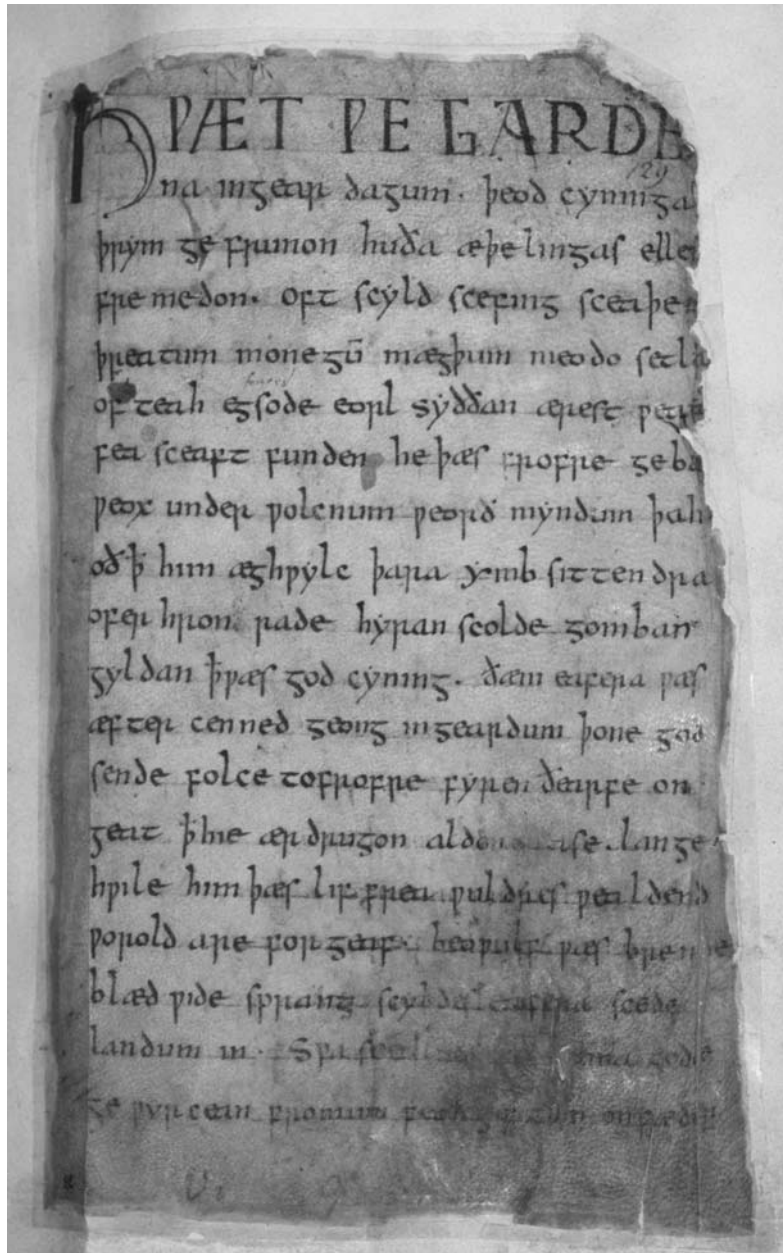 HǷÆT ǷE GARDE
129
na in gear dagum. þeod cyninga
þrym ge frunon huða æþelingas elle
fre medon. oft scyld scefing sceaþe
þreatum monegū mægþum meodo setla
of teah egsode eorl syððan ærest ƿear
fea sceaft funden he þæs frofre geba
ƿeox under ƿolcnum ƿeorð myndum þah
oð ꝥ him æghƿylc þara ymb sittendra
ofer hron rade hyran scolde gomban
gyldan ꝥ ƿæs god cyning. ðæm eafera ƿæs
æfter cenned geong in geardum þone god
sende folce tofrofre fyren ðearfe on
geat ꝥ hie ær drugon aldor ase. lange
hƿile him þæs lif frea ƿuldres ƿealdend
ƿorold are for geaf. beoƿulf ƿæs breme
blæd ƿide sprang scyldes eafera scede
landum in. Sƿa guma gode
ge ƿyrcean fromum feoh giftum on fæder